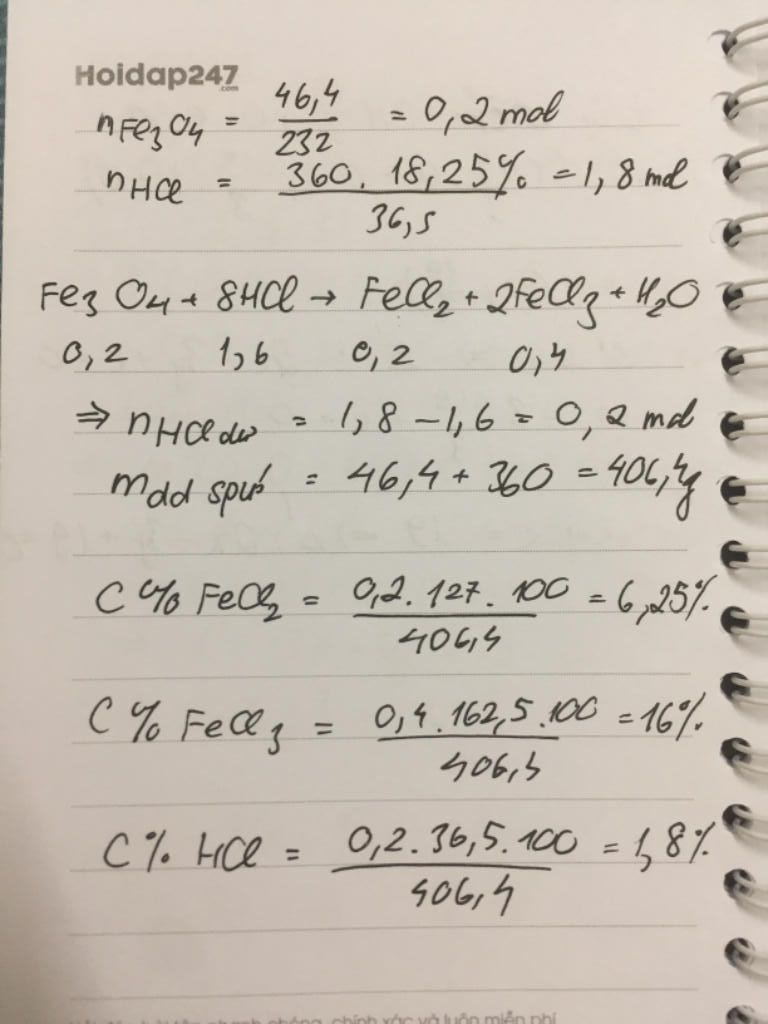 Hoidap247
.com
nFe3O4 = 46,4 / 232 = 0,2 mol
nHCl = 360. 18,25% / 36,5 = 1,8 mol
Fe3O4 + 8HCl → FeCl2 + 2FeCl3 + H2O
0,2 1,6 0,2 0,4
⇒ nHCl dư = 1,8 - 1,6 = 0,2 mol
mdd spứ = 46,4 + 360 = 406,4g
C% FeCl2 = 0,2. 127. 100 / 406,4 = 6,25%
C% FeCl3 = 0,4. 162,5. 100 / 406,4 = 16%
C% HCl = 0,2. 36,5. 100 / 406,4 = 1,8%
nhanh chóng, chính xác và luôn miễn phí